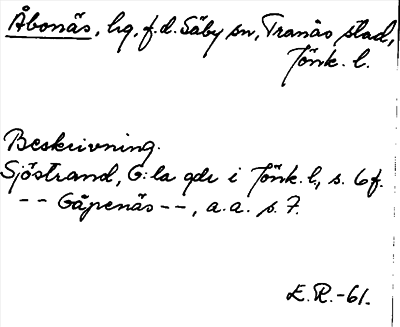 Åbonäs, hg, f.d. Säby sn, Tranås stad,
Jönk. l.
Beskrivning.
Sjöstrand, G:la gdr i Jönk. l., s. 6 f.
-- Gåpenäs --, a.a. s. 7.
E.R.-61.